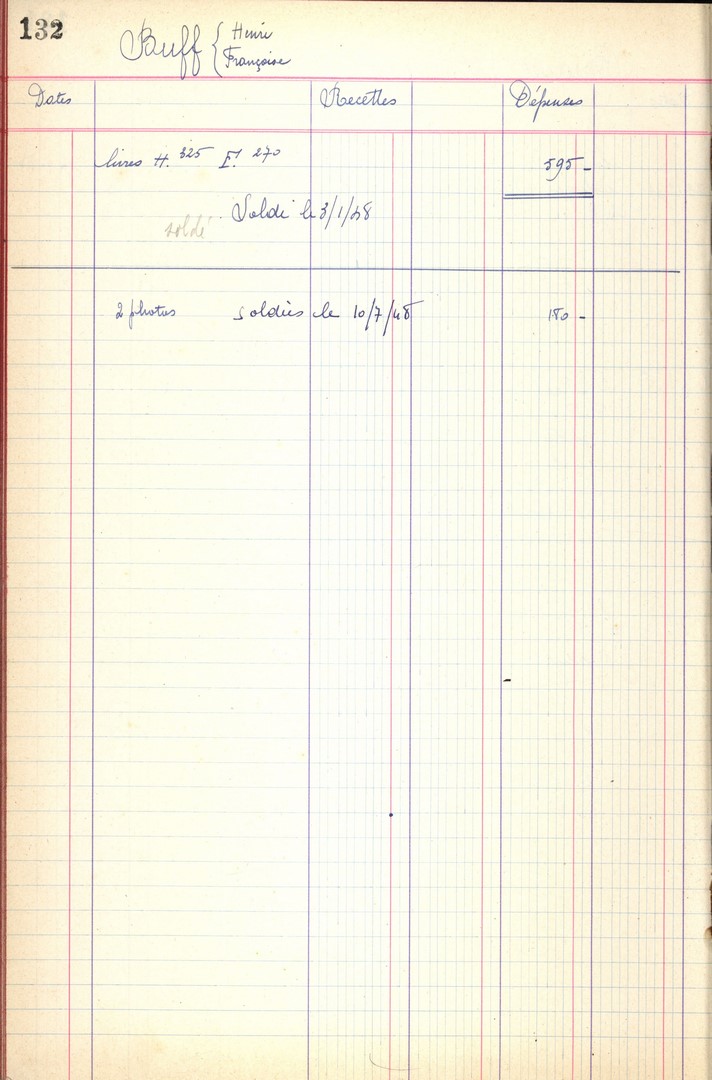 132
Buff { Henri
Françoise
Dates Recettes Dépenses
livres H. 325 F. 270 595 -
Soldé le 3/1/48
soldé
2 photos soldées le 10/7/48 180 -